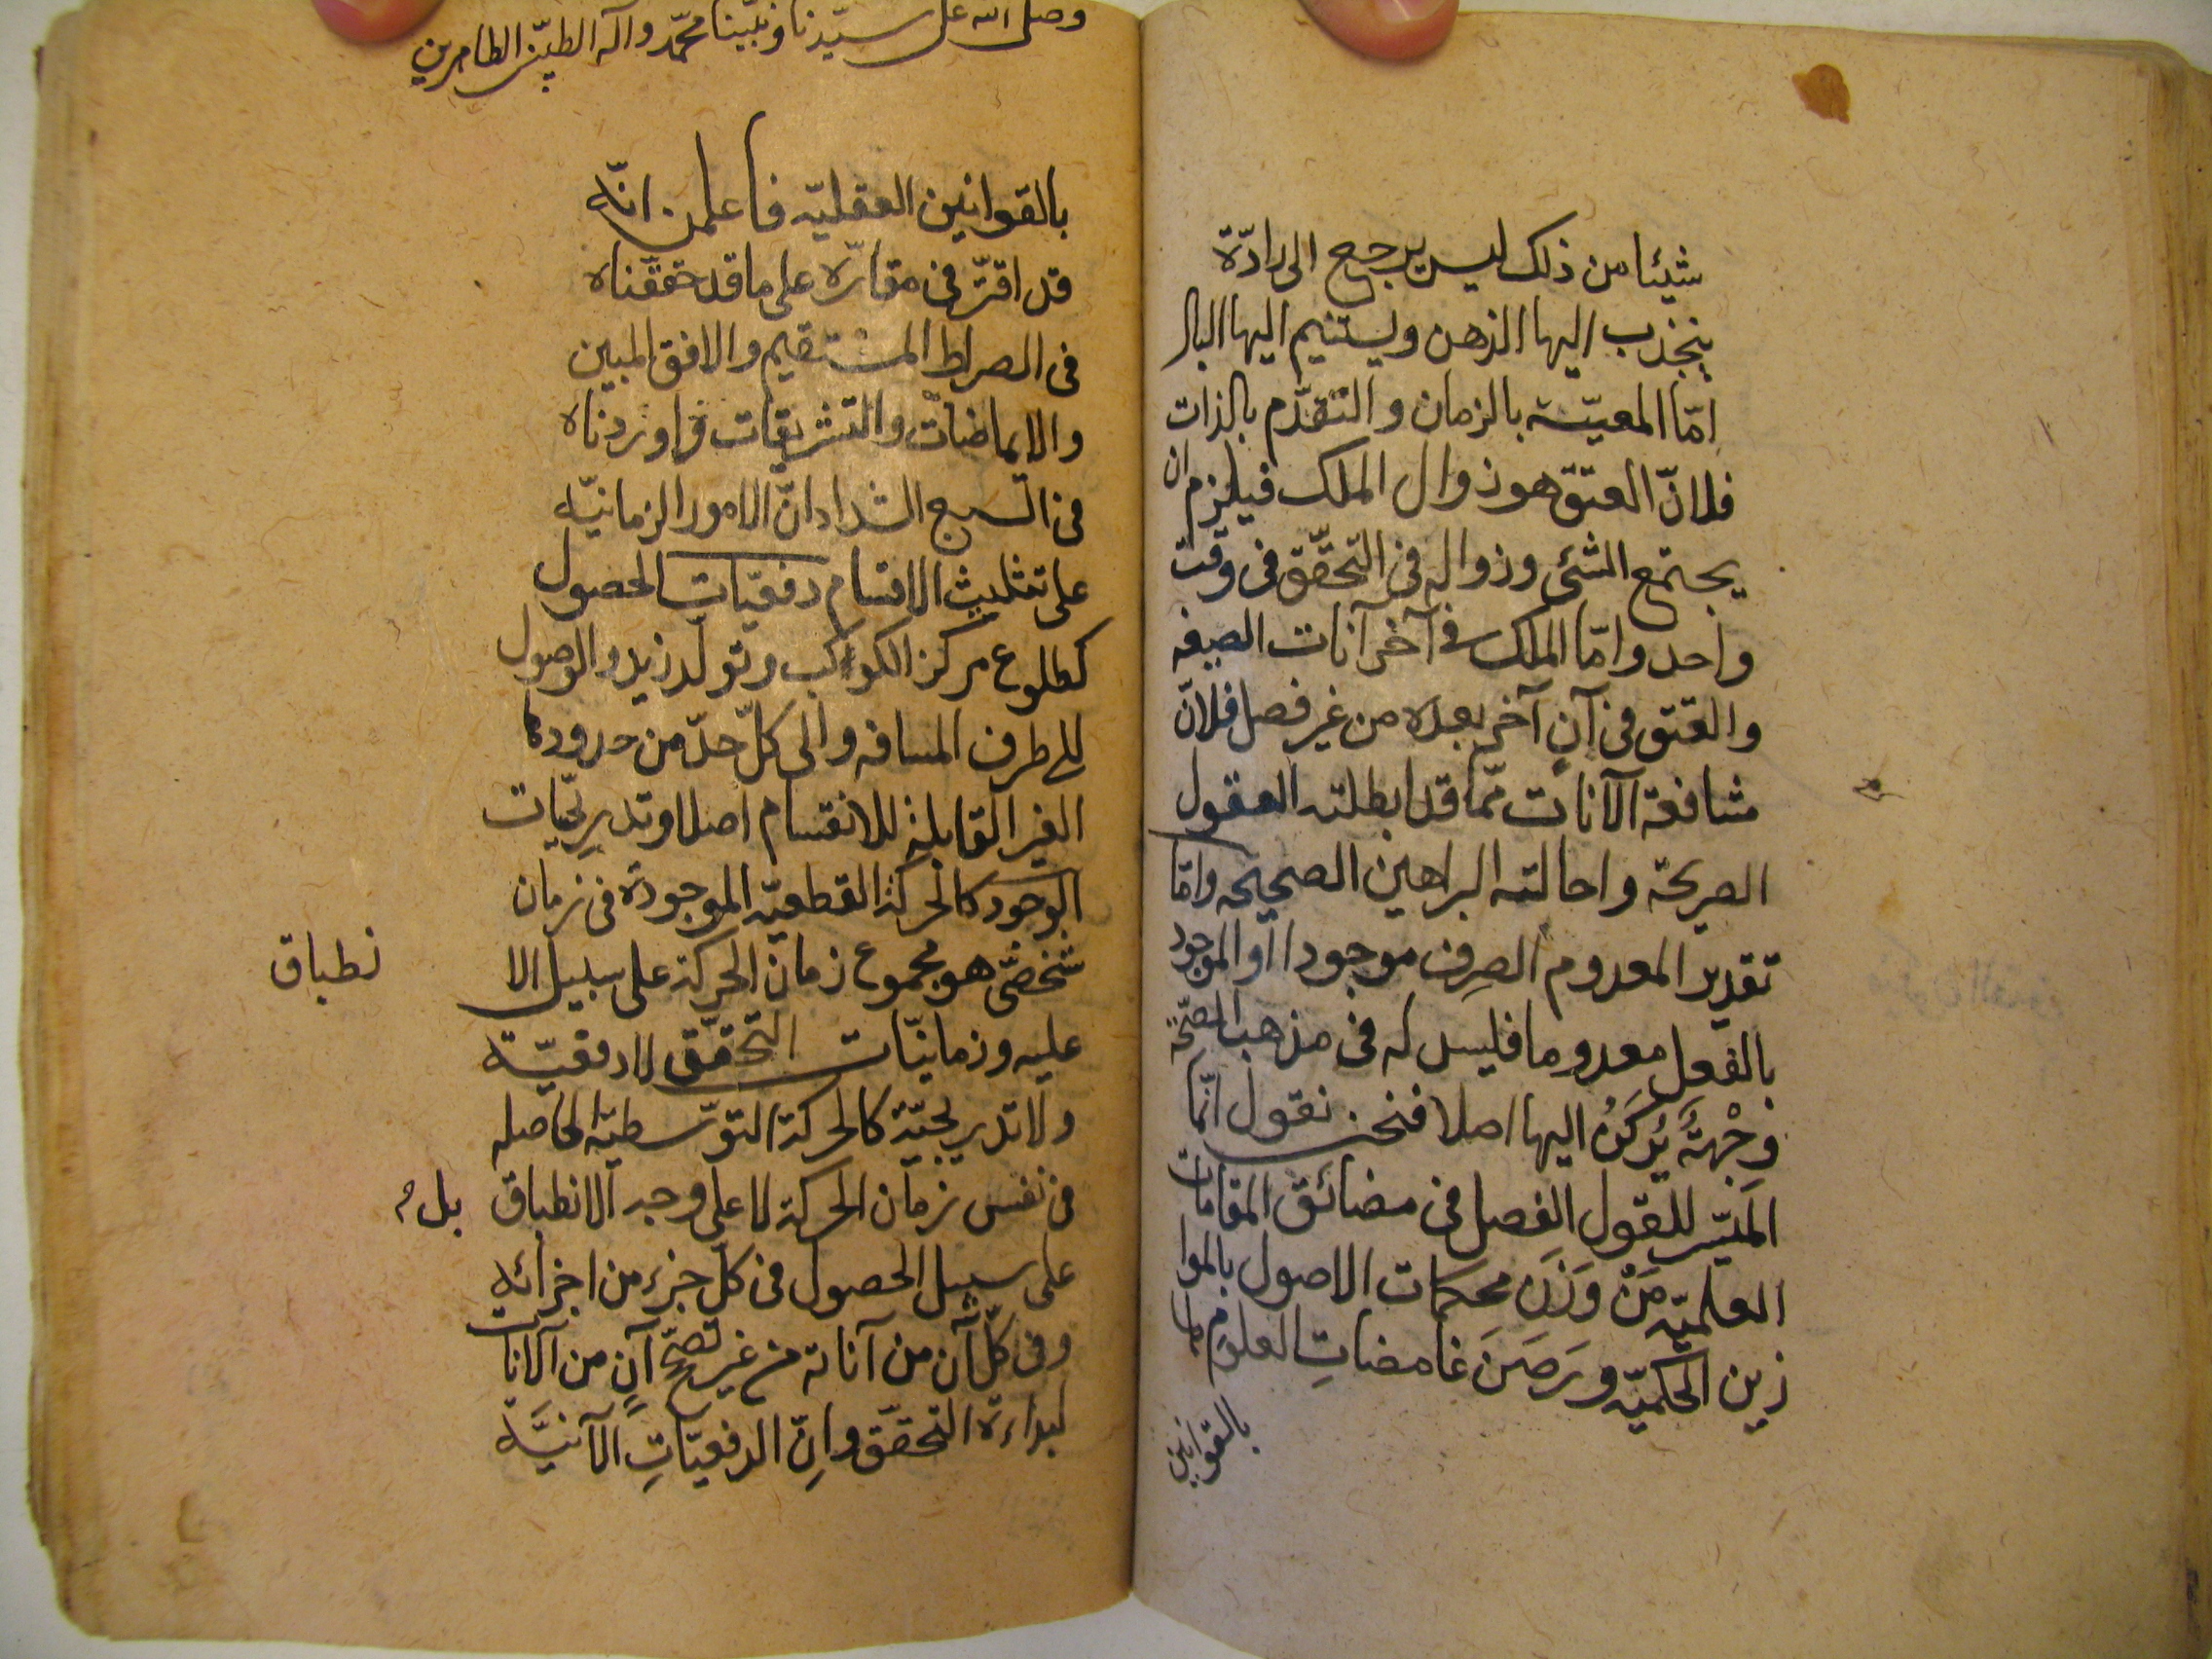 شيئا من ذلك ليس يرجع الى رادّة
ينجذب اليها الذهن ويستنيم اليها البال
امّا المعيّة بالزمان والتقدّم بالذات
فلانّ العتق هو زوال الملك فيلزم ان
يجتمع الشئ وزواله فى التحقّق فى وقت
واحد وامّا الملك فى آخر آنات الصيغه
والعتق فى آنٍ آخر بعده من غير فصل فلانّ
مشافعة الآنات ممّا قد ابطلته العقول
الصريحة واحالته البراهين الصحيحه وامّا
تقدير المعدوم الصرف موجودا او الموجود
بالفعل معدوما فليس له فى مذهب الصحّة
وِجْهَةٌ يُركَنُ اليها اصلا فنحن نقول انّما
الميَسّر للقول الفصل فى مضائق المقامات
العلميّه مَنْ وَزَنَ محكمات الاصول بالموا
زين الحكميّه ورَصَنَ غامضاتِ العلوم
بالقوانين
وصلى الله على سيّدنا ونبيّنا محمّد وآله الطيّبين الطاهرين
بالقوانين العقليّه فاعلمن انّه
قد اقترّ فى مقارّه على ما قد حقّقناه
فى الصراط المستقيم والافق المبين
والايماضات والتشريقات واوردناه
فى السبع الشداد انّ الامور الزمانيّه
على تثليث الاقسام دفعيّات الحصول
كطلوع مركز الكواكب وتولّد زيد والوصول
الى طرف المسافه والى كلّ حدّ من حدودها
الغير القابلة للانقسام اصلا وتدريجيّات
الوجود كالحركة القطعيّه الموجودة فى زمان
شخصّى هو مجموع زمان الحركة على سبيل الا
نطباق
عليه وزمانيّات التحقّق لا دفعيّة
ولا تدريجيّة كالحركة التوسّطيّه الحاصله
فى نفس زمان الحركة لا على وجه الانطباق بل
على سبيل الحصول فى كلّ جزء من اجزائه
وفى كلّ آن من آناته من غير تصحّ آنٍ من الآنات
لبداءة التحقّق وانّ الدفعيّاتِ الآنيَّة